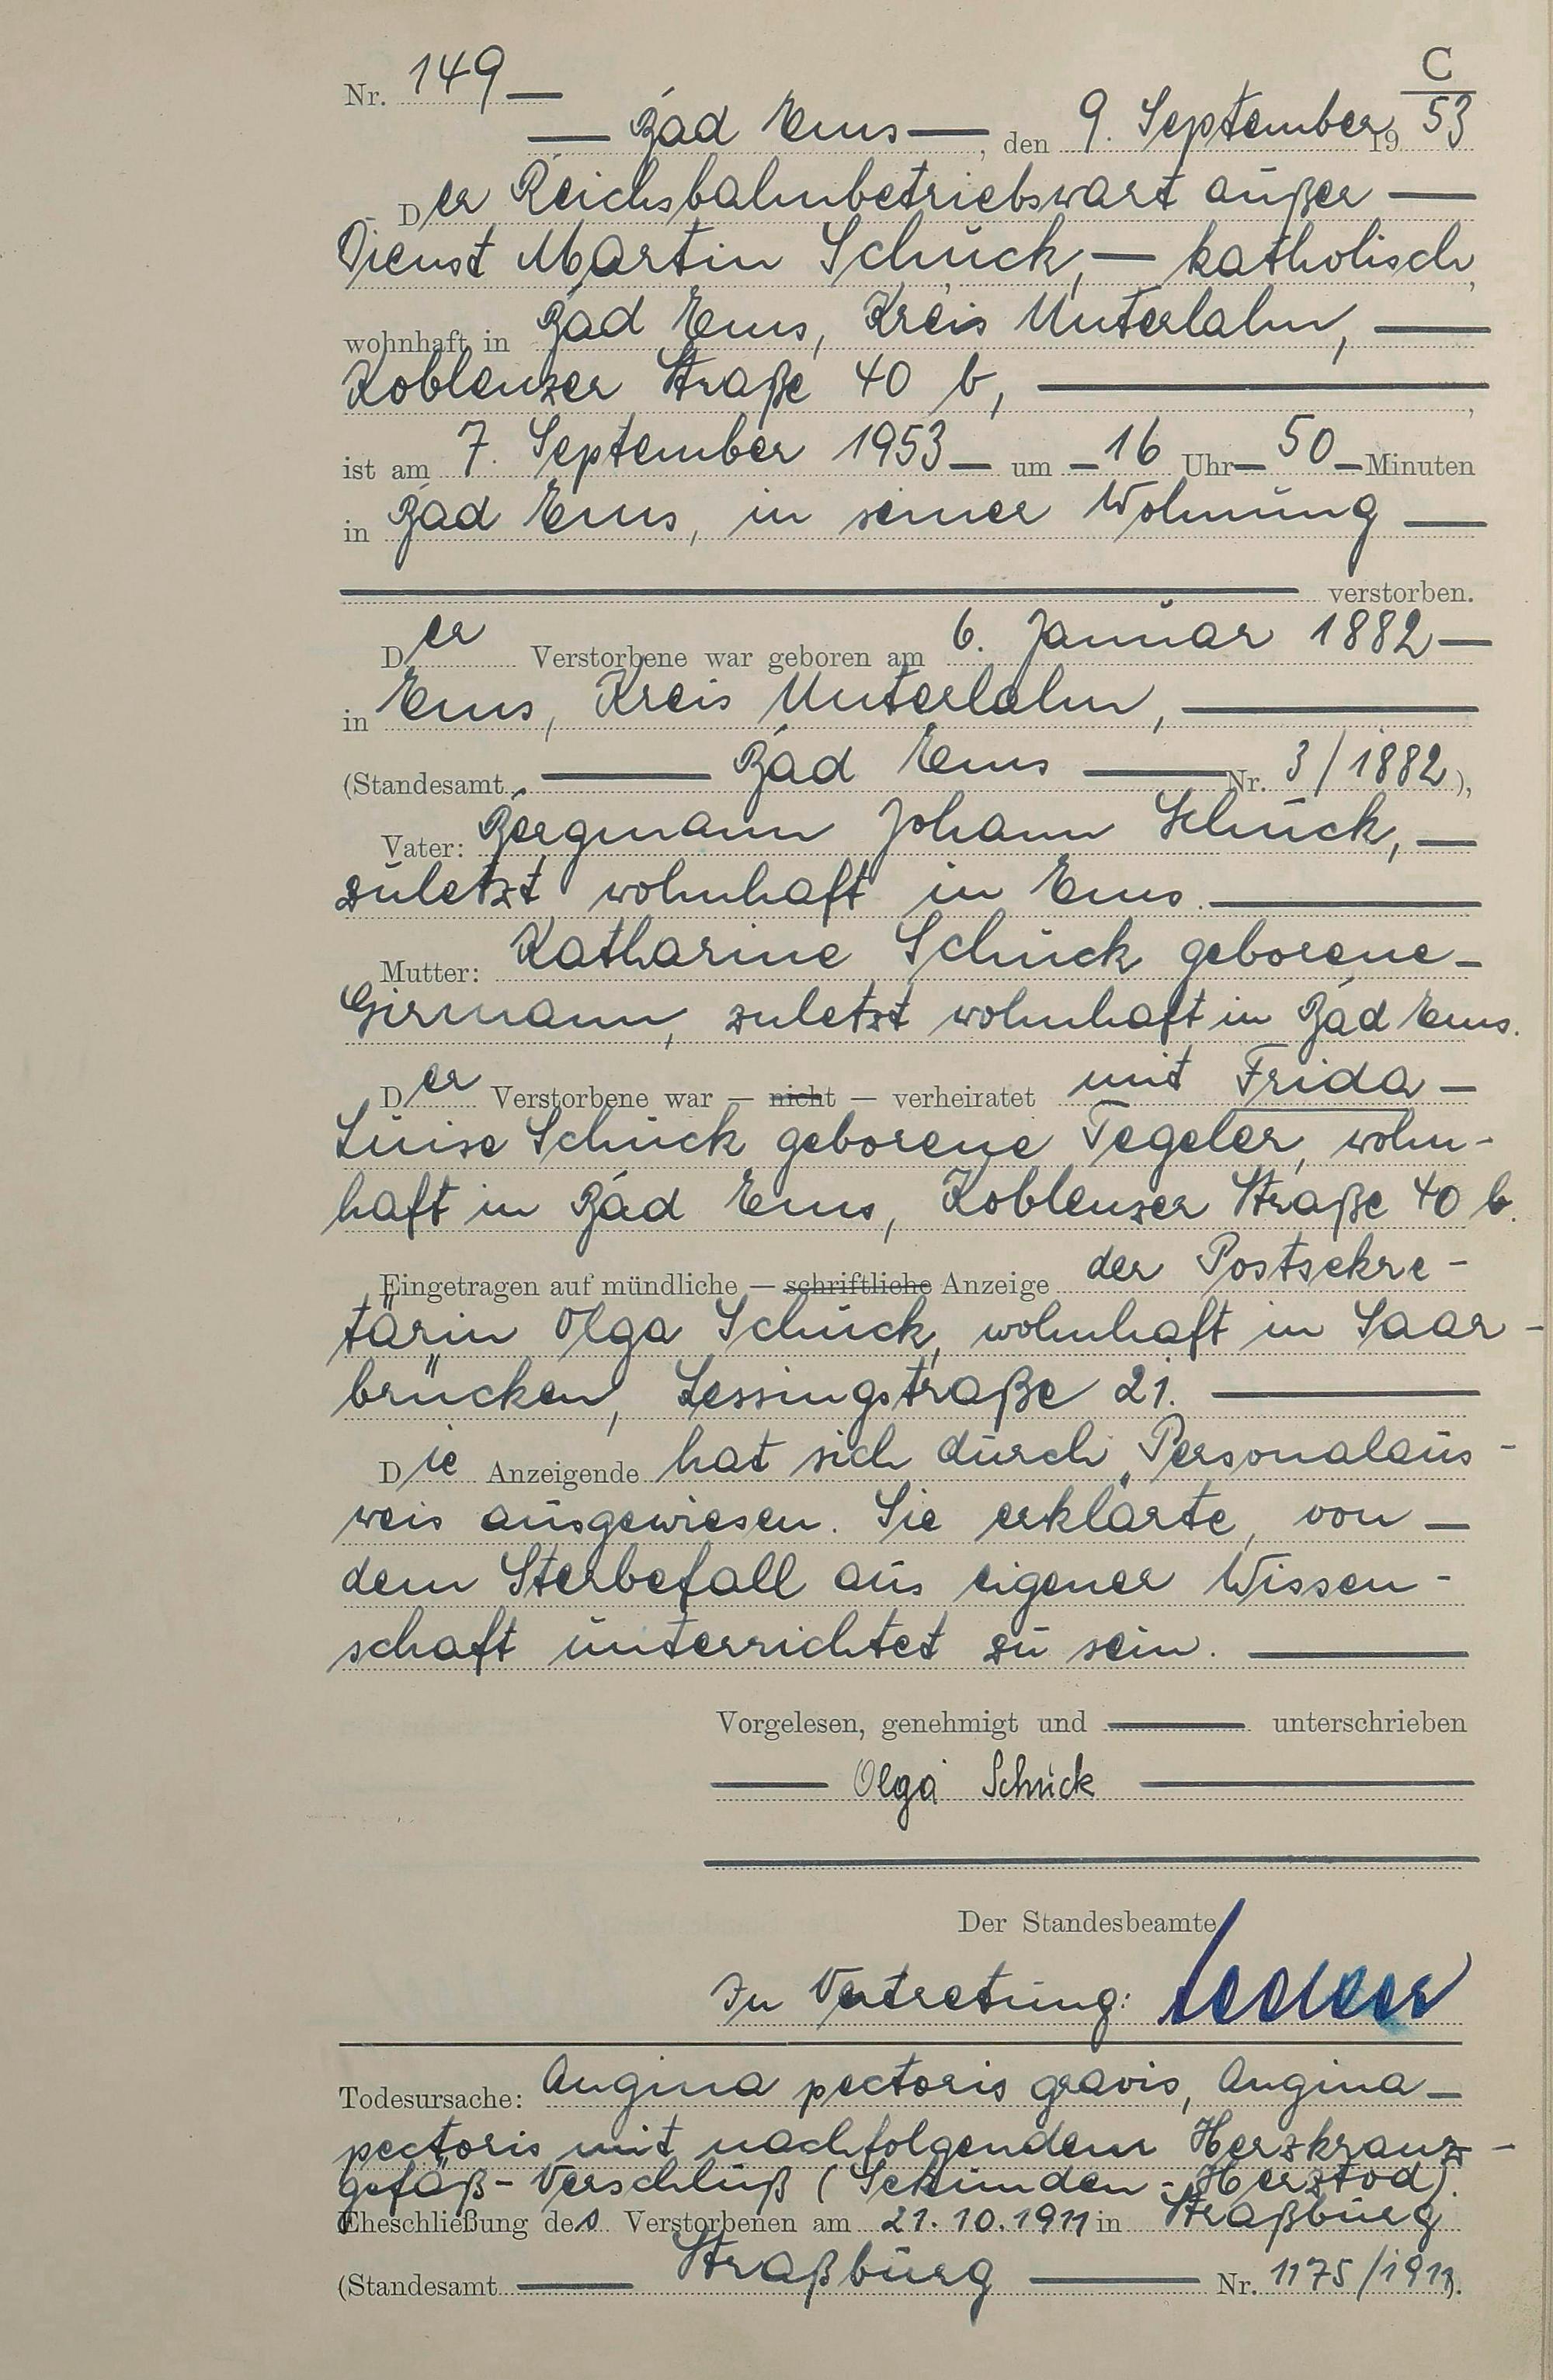 C
Nr. 149 —
— Bad Ems —, den 9. September 19 53
Der Reichsbahnbetriebswart außer —
Dienst Martin Schuck, — katholisch,
wohnhaft in Bad Ems, Kreis Unterlahn, —
Koblenzer Straße 40 b, —,
ist am 7. September 1953 — um — 16 Uhr — 50 — Minuten
in Bad Ems, in seiner Wohnung —
— verstorben.
Der Verstorbene war geboren am 6. Januar 1882 —
in Ems, Kreis Unterlahn, —
(Standesamt — Bad Ems — Nr. 3/1882),
Vater: Bergmann Johann Schuck, —
zuletzt wohnhaft in Ems. —
Mutter: Katharine Schuck geborene —
Girmann, zuletzt wohnhaft in Bad Ems.
Der Verstorbene war — nicht — verheiratet mit Frida —
Luise Schuck geborene Tegeler, wohn-
haft in Bad Ems, Koblenzer Straße 40 b.
Eingetragen auf mündliche — schriftliche Anzeige der Postsekre-
tärin Olga Schuck, wohnhaft in Saar-
brücken, Lessingstraße 21. —
Die Anzeigende hat sich durch Personalaus-
weis ausgewiesen. Sie erklärte, von —
dem Sterbefall aus eigener Wissen-
schaft unterrichtet zu sein. —
Vorgelesen, genehmigt und — unterschrieben
— Olga Schuck —
Der Standesbeamte
In Vertretung:
Todesursache: Angina pectoris gravis, Angina —
pectoris mit nachfolgendem Herzkranz-
gefäß-Verschluß (Sekunden-Herztod).
Eheschließung des Verstorbenen am 21.10.1911 in Straßburg
(Standesamt — Straßburg — Nr. 1175/1911).